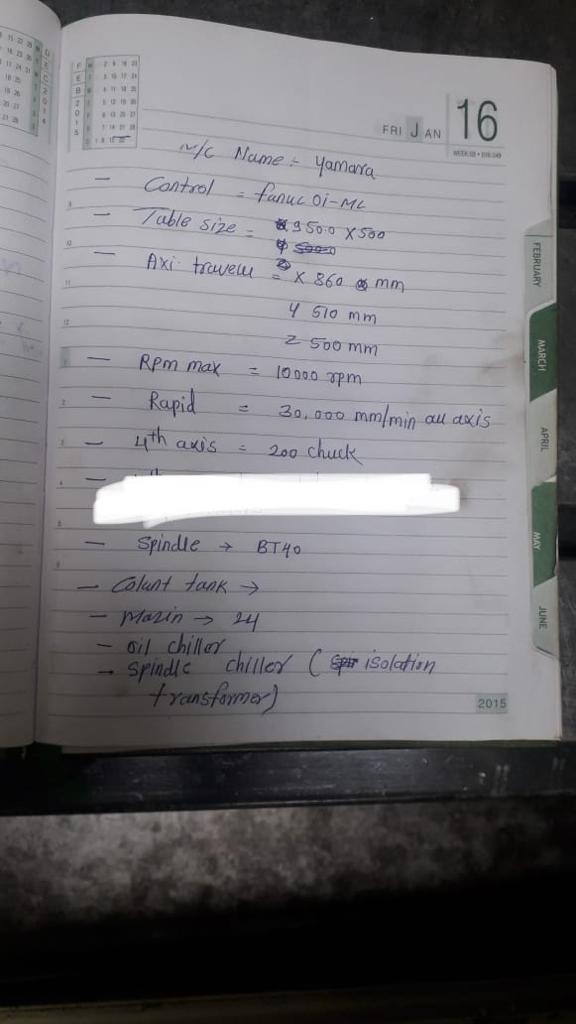 FRI JAN 16
M/C Name :- Yamara
- Control = fanuc Oi-MC
- Table size = 950.0 X 500
- Axi travelu = X 860 mm
Y 510 mm
Z 500 mm
- Rpm max = 10000 rpm
- Rapid = 30,000 mm/min all axis
- 4th axis = 200 chuck
- Spindle → BT40
- Colant tank →
- Mazin → 24
- oil chiller
- spindle chiller ( isolation
transformer)
2015
FEBRUARY
MARCH
APRIL
MAY
JUNE